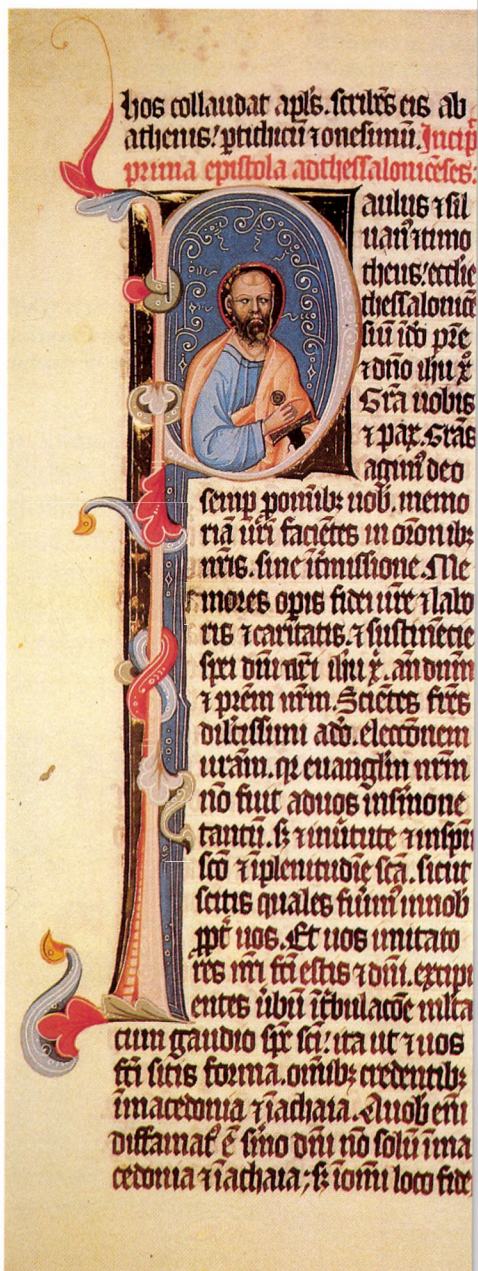 hos collaudat apl's. scribēs eis ab
athenis: p tithicū ⁊ onesimū. Incip
prima epistola ad thessalonicēses:
Paulus ⁊ sil
uan' ⁊ timo
theus: ecclie
thessalonicē
siū ī do pr̄e
⁊ dn̄o ihu x̄
Gr̄a uobis
⁊ pax. Gr̄as
agim' deo
semp p om̄ibꝫ uob. memo
riā ur̄i faciētes in or̄onibꝫ
nr̄is. sine īt'missione. Me
mores opis fidei ur̄e ⁊ labo
ris ⁊ caritatis. ⁊ sustinētie
spei dn̄i nr̄i ihu x̄. an̄ dn̄m
⁊ pr̄em nr̄m. Sciētes fr̄es
dilc̄issimi a do. elecc̄onem
ur̄am. qr euangliū nr̄m
nō fuit ad uos in s'mone
tantū. sꝫ ⁊ in ūtute ⁊ in spū
sc̄o ⁊ ī plenitudīe sc̄a. sicut
scitis quales fuim' in uob
ppt' uos. Et uos imitato
res nr̄i fc̄i estis ⁊ dn̄i. excipi
entes ūbū ī t'bulac̄oe mlta
cum gaudio sp̄c sc̄i: ita ut ⁊ uos
fc̄i sitis forma. om̄ibꝫ credentibꝫ
ī macedonia ⁊ ī achaia. A uob eni
diffamat' ē s'mo dn̄i nō solū ī ma
cedonia ⁊ ī achaia: sꝫ ī om̄i loco fide